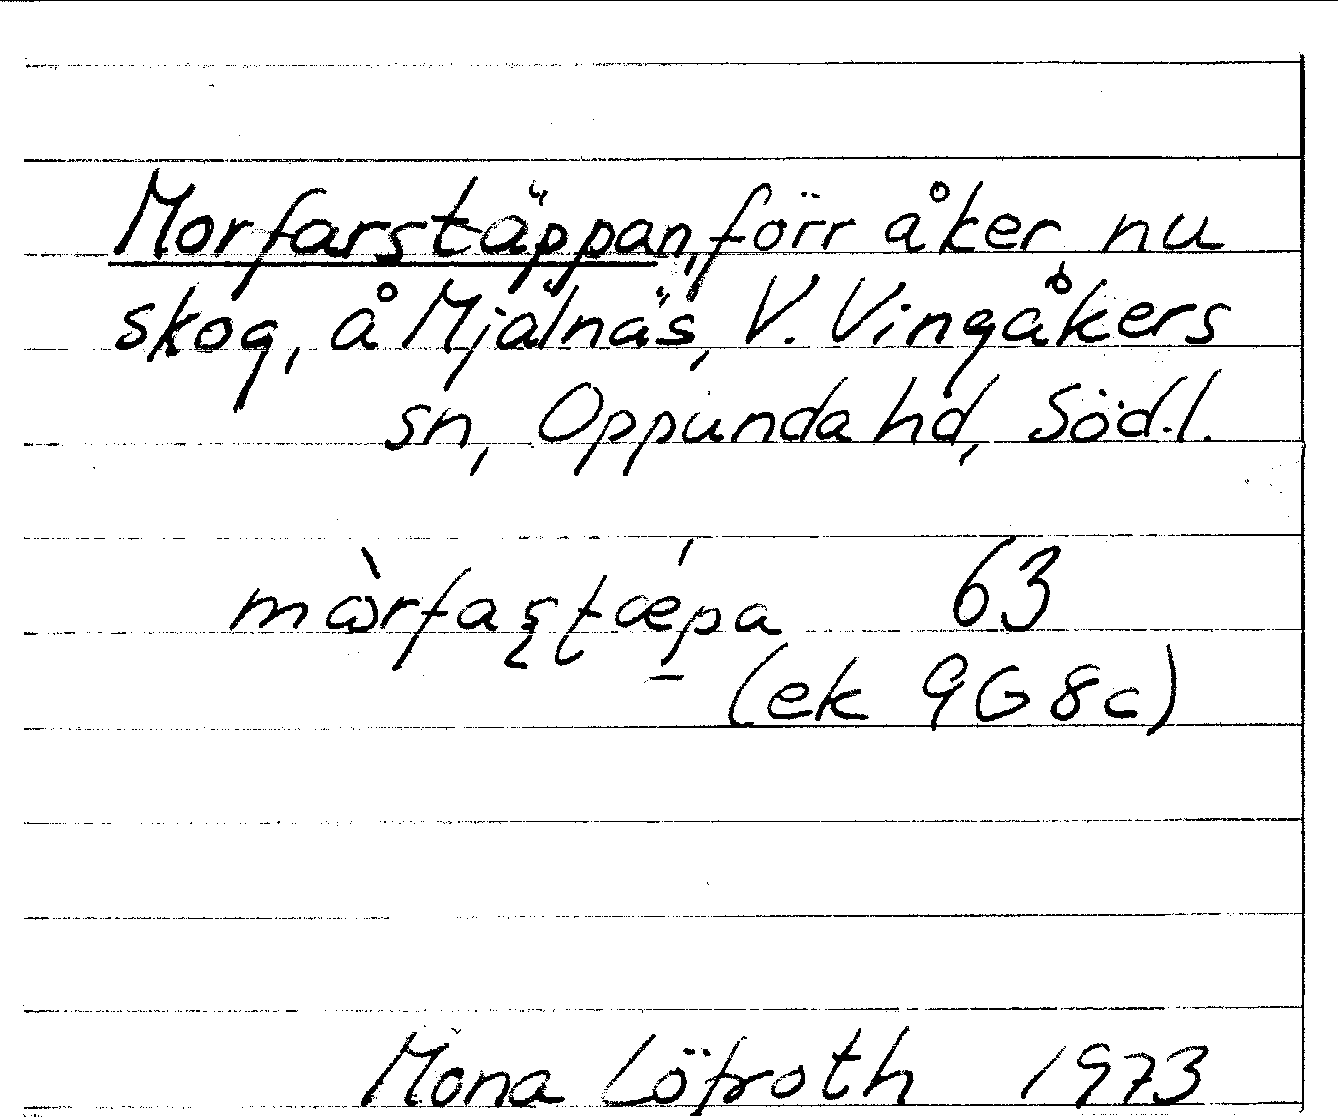 Morfarstäppan, förr åker nu
skog, å Mjälnäs, V. Vingåkers
sn, Oppunda hd, Söd.l.
mɷ̀rfaʂʈǽp̠a 63
(ek 9G8c)
Mona Löfroth 1973